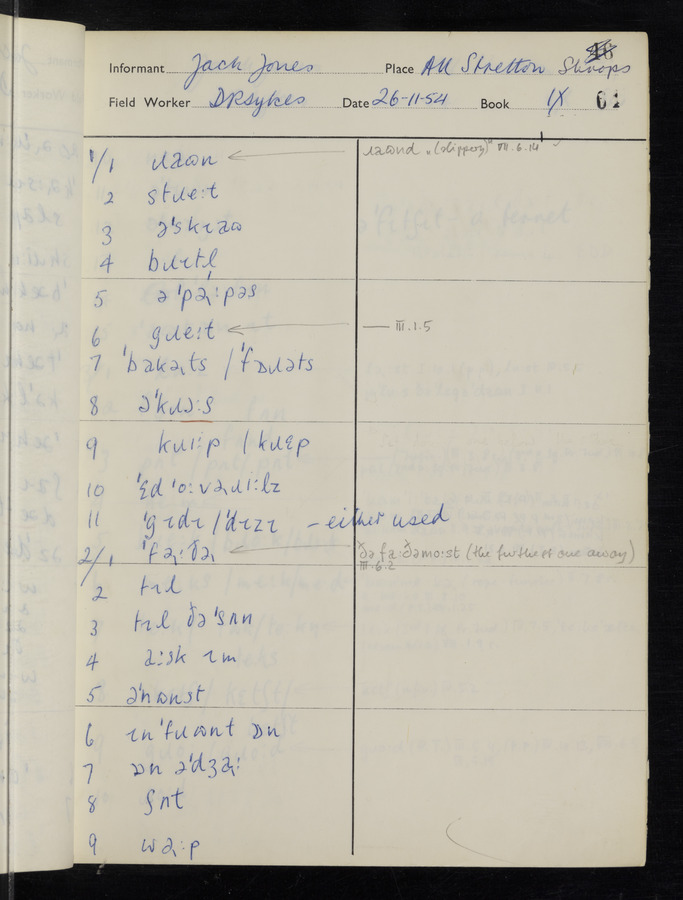 Informant Jack Jones Place All Stretton Shrops
Field Worker DRSykes Date 26-11-54 Book IX 02
1/1 ɹaɷn ɹaɷnd "(slippery)" VII.6.14
2 stɹeːt
3
4 bɹɪtl
5 ə ˈpə˞ːpəs
6 gɹeːt — III.1.5
7 ˈbakə˞ts / ˈfɒɹəts
8 əˈkɹɔːs
9 kɹiːp / kɹɛp
10 ˈɛd ˈoːvə˞ɹiːlz
11 ˈgɪdɪ / ˈdɪzɪ - either used
2/1 ˈfə˞ːðə˞ ðə faːðəmoːst (the furthest one away)
III.6.2
2 tɪl
3 tɪl ðə ˈsʌn
4 aːsk ɪm
5 əˈnɷnst
6 ɪnˈfɹɷnt ɒn
7 ɒn əˈdʒə˞ː
8 ʃʌt
9 wə˞ːp